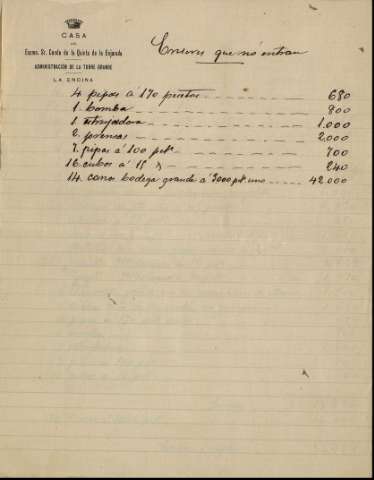 CASA
DEL
Excmo. Sr. Conde de la Quinta de la Enjarada
ADMINISTRACIÓN DE LA TORRE GRANDE
LA ENCINA
Enseres que no entran
4 pipas á 170 pesetas 680
1. bomba 800
1 estrujadora 1.000
2. prensas 2.000
7. pipas á 100 pts. 700
16. cubos á 15 240
14. conos bodega grande á 3000 pts. uno 42.000